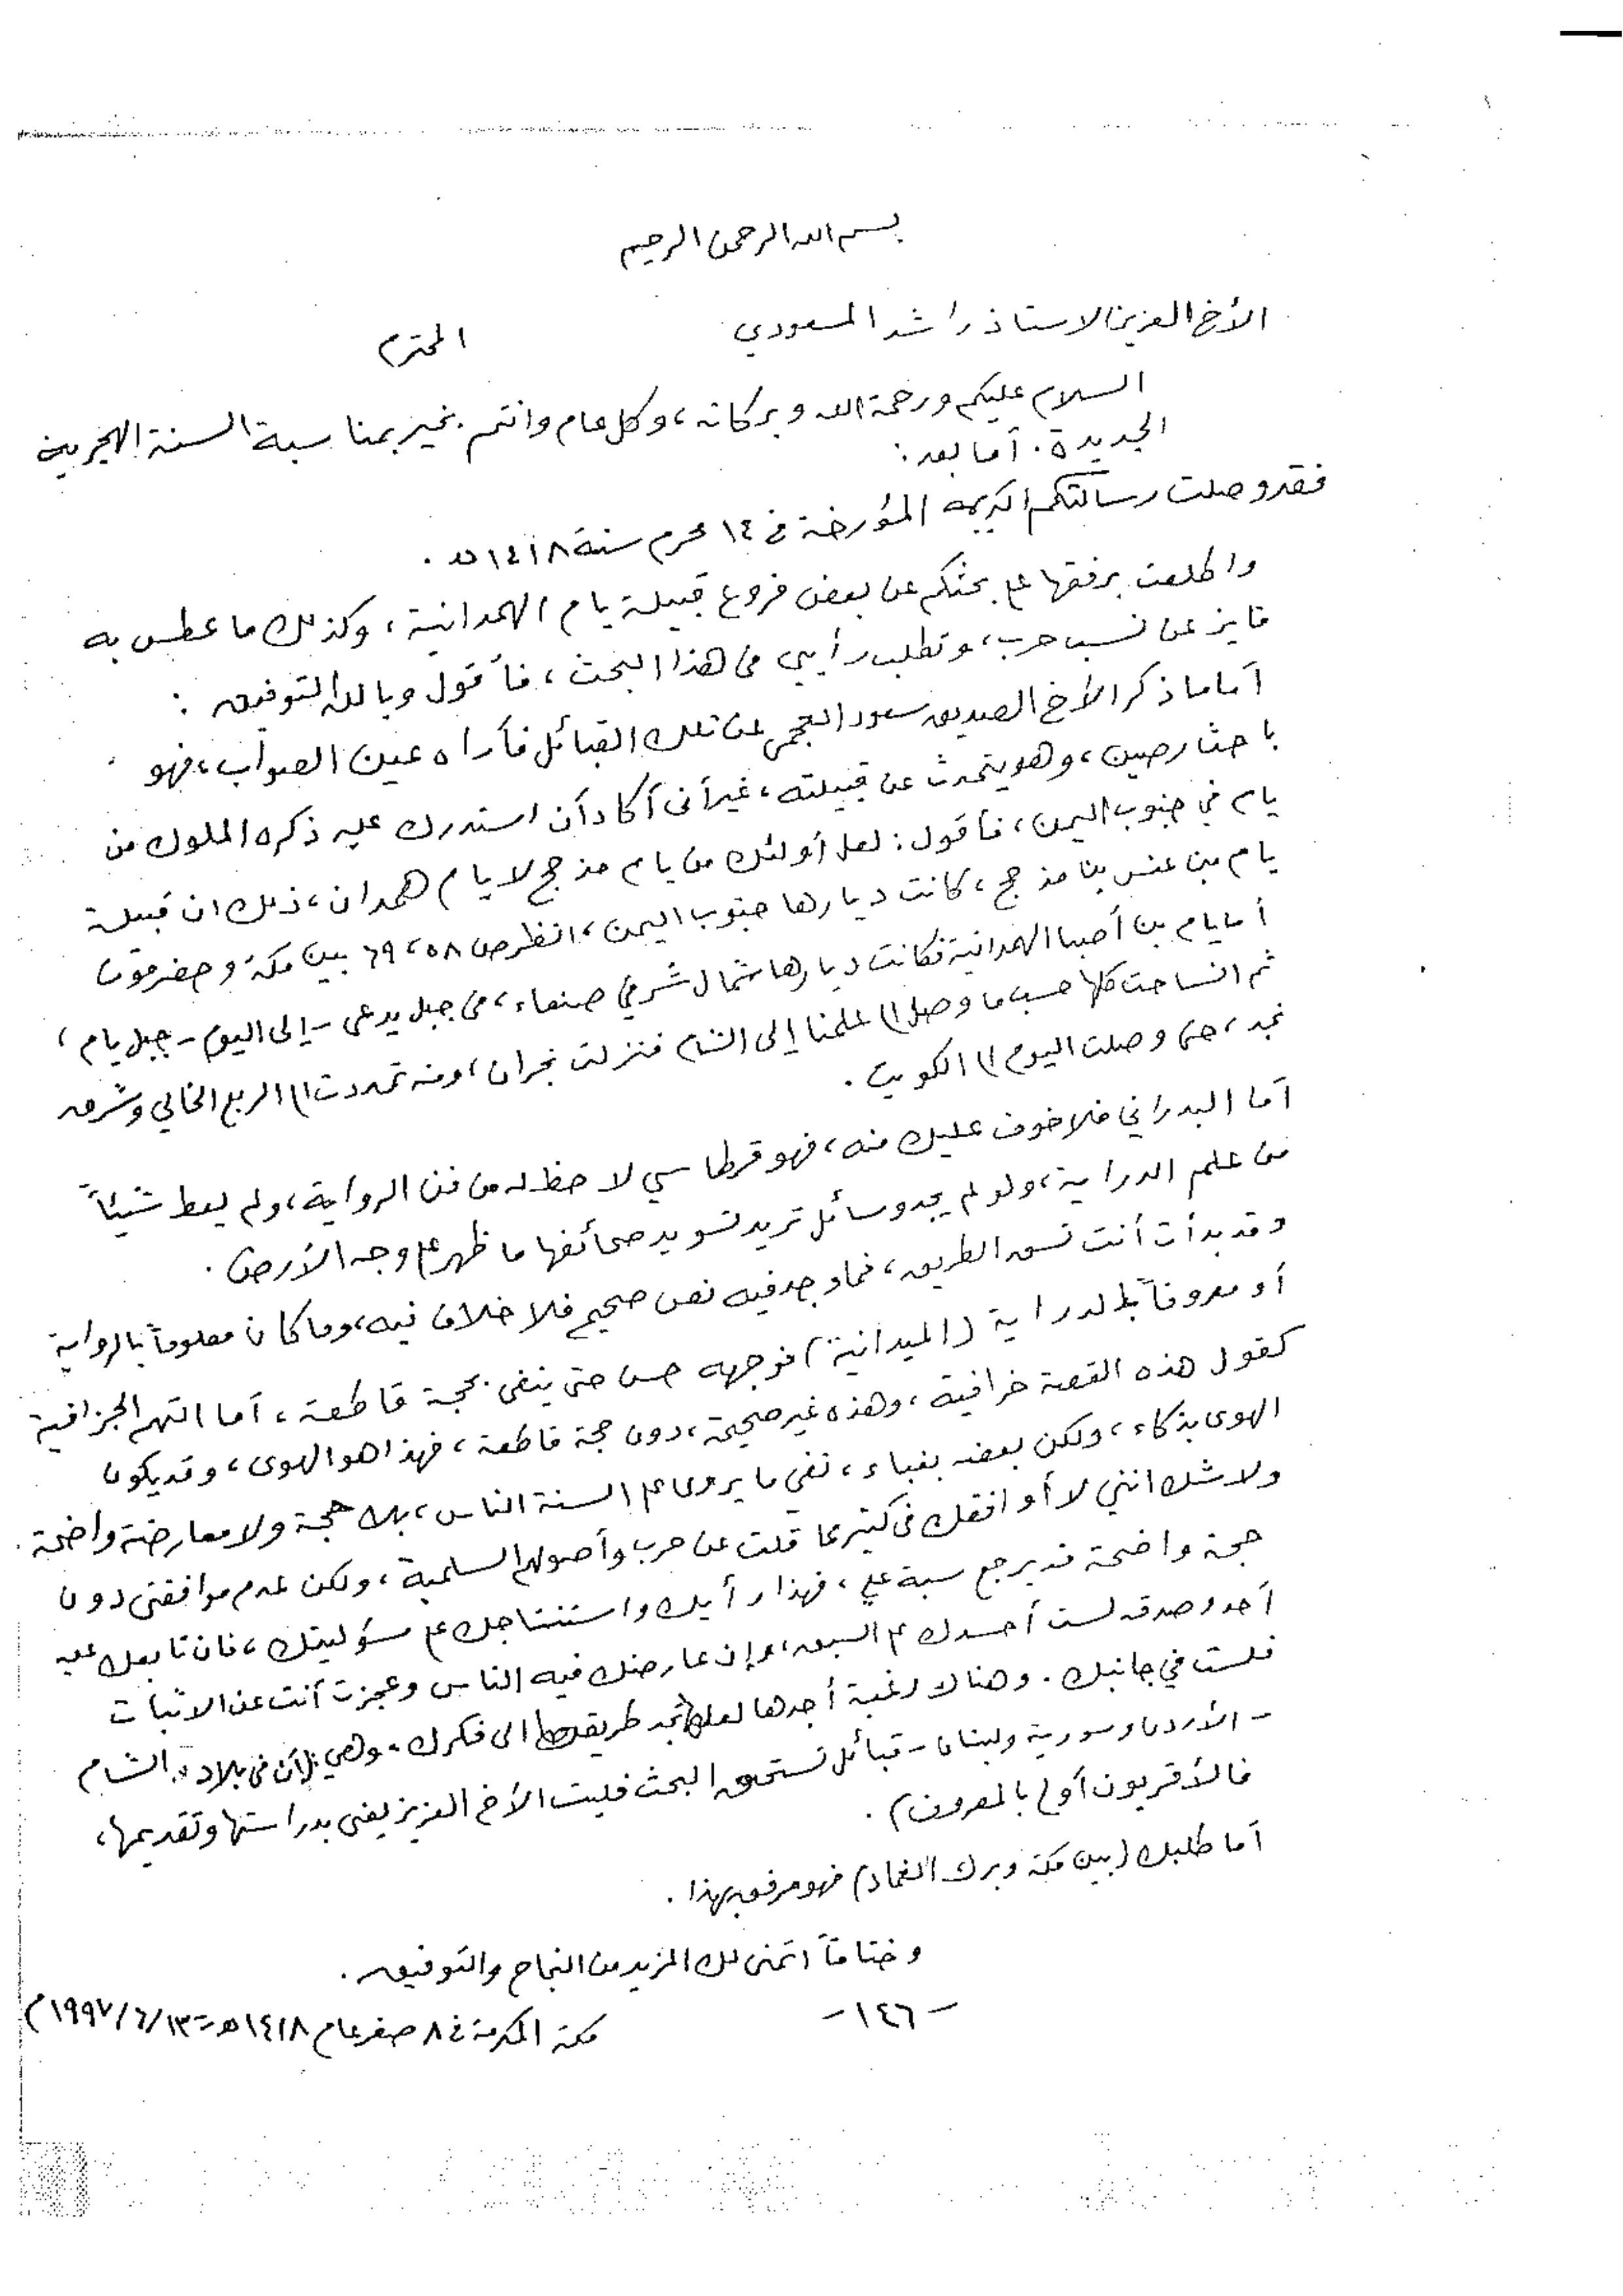 بسم الله الرحمن الرحيم
الأخ العزيز الاستاذ راشد المسعودي المحترم
السلام عليكم ورحمة الله وبركاته، وكل عام وانتم بخير بمناسبة السنة الهجرية
الجديدة. أما بعد:
فقد وصلت رسالتكم الكريمه المؤرخة في ١٤ محرم سنة ١٤١٨ه.
واطلعت برفقها على بحثكم عن بعض فروع قبيلة يام الهمدانية، وكذلك ما عطس به
فايز عن نسب حرب، وتطلب رأيي في هذا البحث، فأقول وبالله التوفيق:
أما ما ذكر الأخ الصديق سعود العجمي عن تلك القبائل فأراه عين الصواب، فهو
باحث رصين، وهو يتحدث عن قبيلته، غير أنى أكاد أن استدرك عليه ذكره الملوك من
يام في جنوب اليمن، فأقول: لعل أولئك من يام مذحج لا يام همدان، ذلك ان قبيلة
يام بن عنس بن مذحج، كانت ديارها جنوب اليمن، انظر ص ٥٨، ٦٩ بين مكة وحضرموت
أما يام بن أصبا الهمدانية فكانت ديارها شمال شرقي صنعاء، في جبل يدعى - إلى اليوم - جبل يام،
ثم انساحت كلها حسب ما وصل إلى علمنا إلى الشام فنزلت نجران، ومنه تمددت إلى الربع الخالي وشرق
نجد، حتى وصلت اليوم إلى الكويت.
أما البدراني فلا خوف عليك منه، فهو قرطاسي لا حظ له من فن الرواية، ولم يعط شيئاً
من علم الدراية، ولو لم يجد وسائل تريد تسويد صحائفها ما ظهر على وجه الأرض.
وقد بدأت أنت تسق الطريق، فما وجد فيه نص صحيح فلا خلاف فيه، وما كان معلوماً بالرواية
أو معروفاً بالدراية (الميدانية) فوجهه حسن حتى ينفى بحجة قاطعة، أما التهم الجزافية
كقول هذه القصة خرافية، وهذه غير صحيحة، دون حجة قاطعة، فهذا هو الهوى، وقد يكون
الهوى بذكاء، ولكن بعضه بغباء، نفي ما يروى على السنة الناس، بلا حجة ولا معارضة واضحة.
ولا شك انني لا أوافقك في كثير مما قلت عن حرب وأصولهم السلمية، ولكن عدم موافقتى دون
حجة واضحة قد يرجع سبة علي، فهذا رأيك واستنتاجك على مسؤليتك، فان تابعك عليه
أحد وصدقه لست أحسدك على السبق، وإن عارضك فيه الناس وعجزت أنت عن الاثبات
فلست في جانبك. وهناك رغبة أجدها لعلها تجد طريقها الى فكرك. وهي: أن في بلاد الشام
- الأردن وسورية ولبنان - قبائل تستحق البحث فليت الأخ العزيز يعنى بدراستها وتقديمها،
فالأقربون أولى بالمعروف).
أما طلبك (بين مكة وبرك الغماد) فهو مرفق بهذا.
وختاماً اتمنى لك المزيد من النجاح والتوفيق.
- ١٤٦ -
مكة المكرمة في ٨ صفر عام ١٤١٨هـ = ١٣/٦/١٩٩٧م